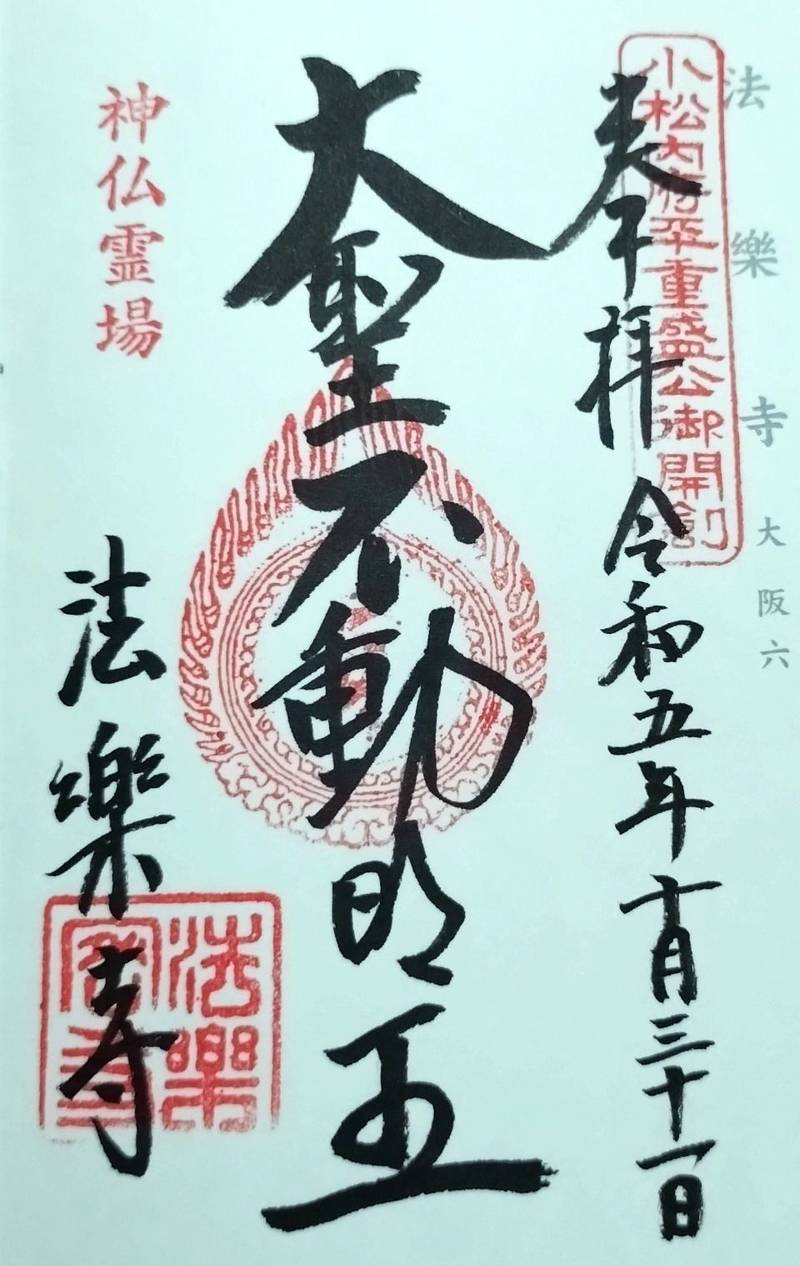 法樂寺 大阪六
小松内府平重盛公御開創
奉拝 令和五年十月三十一日
大聖不動明王
神仏霊場
法樂寺